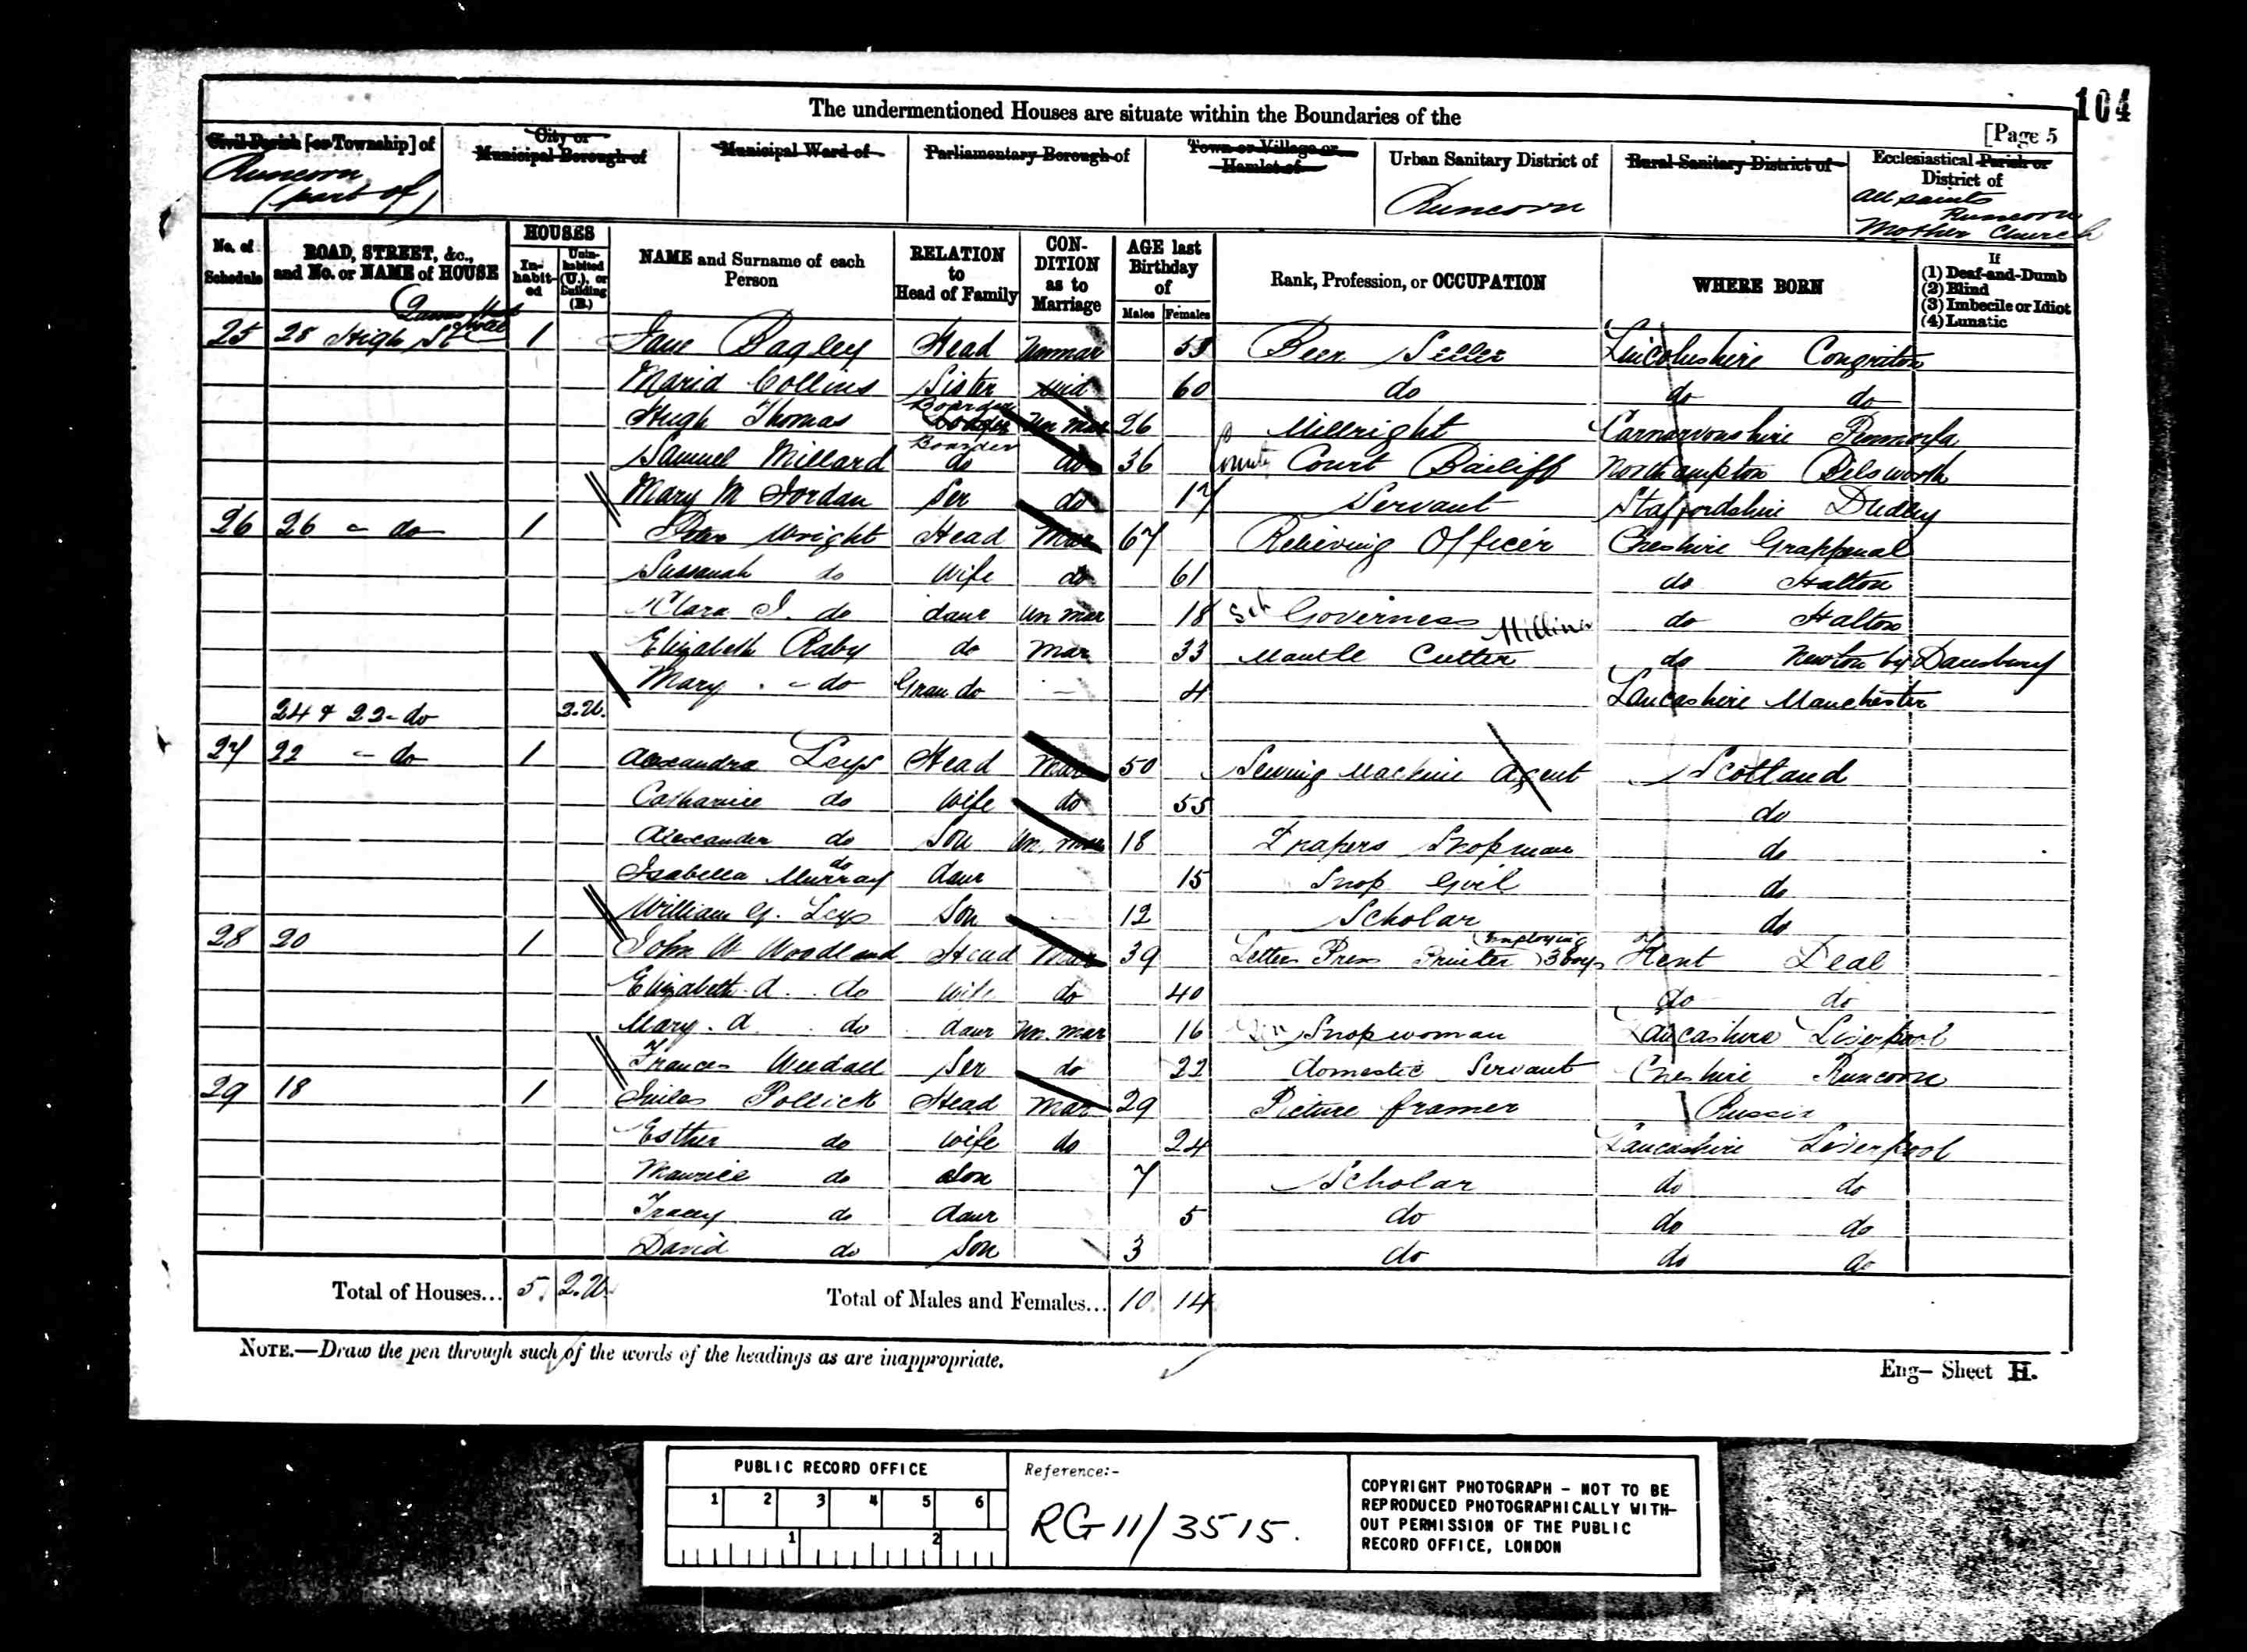 104
The undermentioned Houses are situate within the Boundaries of the
[Page 5
Civil Parish [or Township] of
City or Municipal Borough of
Municipal Ward of
Parliamentary Borough of
Town or Village or Hamlet of
Urban Sanitary District of
Rural Sanitary District of
Ecclesiastical Parish or District of
Runcorn (part of)
Runcorn
All Saints Runcorn Mother Church
No. of Schedule
ROAD, STREET, &c., and No. or NAME of HOUSE
HOUSES
Inhabited
Uninhabited (U.), or Building (B.)
NAME and Surname of each Person
RELATION to Head of Family
CONDITION as to Marriage
AGE last Birthday of
Males Females
Rank, Profession, or OCCUPATION
WHERE BORN
If (1) Deaf-and-Dumb (2) Blind (3) Imbecile or Idiot (4) Lunatic
25 28 High St 1 Jane Bagley Head Unmar 53 Beer Seller Lincolnshire
Maria Collins Sister Wid 60 do do do
Hugh Thomas Boarder Un mar 26 Millright Carnarvonshire Penmorfa
Samuel Millard Boarder do do 36 County Court Bailiff Northampton Bilsworth
Mary M Jordan Ser do 17 Servant Staffordshire Dudley
26 26 - do 1 Peter Wright Head Mar 67 Relieving Officer Cheshire Grappenal
Sussanah do Wife do 61 do Halton
Clara J. do daur Un mar 18 Sch Governess do Halton
Elizabeth Raby do Mar 33 Mantle Cutter Milliner do Newton by Daresbury
Mary - do Gran do - 4 Lancashire Manchester
24 & 22 - do 2.U.
27 22 - do 1 Alexandra Leys Head Mar 50 Sewing Machine Agent Scotland
Catharine do Wife do 55 do
Alexander do Son Un. mar 18 Drapers Shopman do
Isabella Murray do daur 15 Shop Girl do
William G. Leys Son - 12 Scholar do
28 20 1 John W Woodland Head Mar 39 Letter Press Printer (Employing 3 boys Kent Deal
Elizabeth A. do Wife do 40 do do
Mary. A. do daur Un. mar 16 Shopwoman Lancashire Liverpool
Frances Weedall Ser do 22 Domestic Servant Cheshire Runcorn
29 18 1 Pollick Head Mar 29 Picture framer Russia
Esther do wife do 24 Lancashire Liverpool
Maurice do Son 7 Scholar do do
Tracey do daur 5 do do do
David do Son 3 do do do
Total of Houses... 5. 2.U. Total of Males and Females... 10 14
NOTE.—Draw the pen through such of the words of the headings as are inappropriate.
Eng— Sheet H.
PUBLIC RECORD OFFICE
1 2 3 4 5 6
1 2
Reference:-
RG 11/3515.
COPYRIGHT PHOTOGRAPH - NOT TO BE
REPRODUCED PHOTOGRAPHICALLY WITH-
OUT PERMISSION OF THE PUBLIC
RECORD OFFICE, LONDON